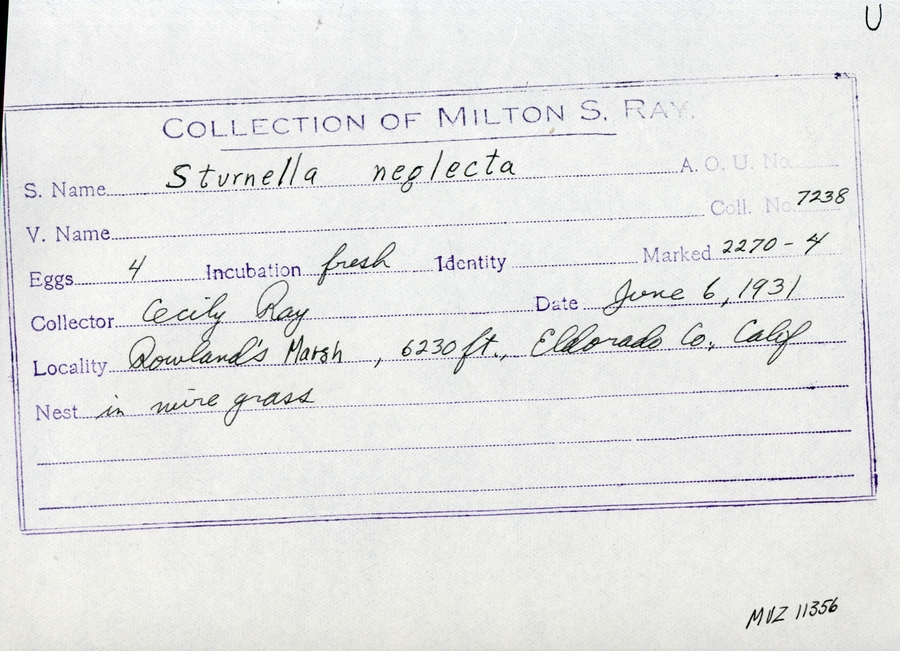 U
COLLECTION OF MILTON S. RAY.
S. Name Sturnella neglecta A. O. U. No.
Coll. No. 7238
V. Name
Eggs 4 Incubation fresh Identity Marked 2270-4
Collector Cecily Ray Date June 6, 1931
Locality Rowland's Marsh, 6230 ft., Eldorado Co., Calif
Nest in wire grass
MVZ 11356